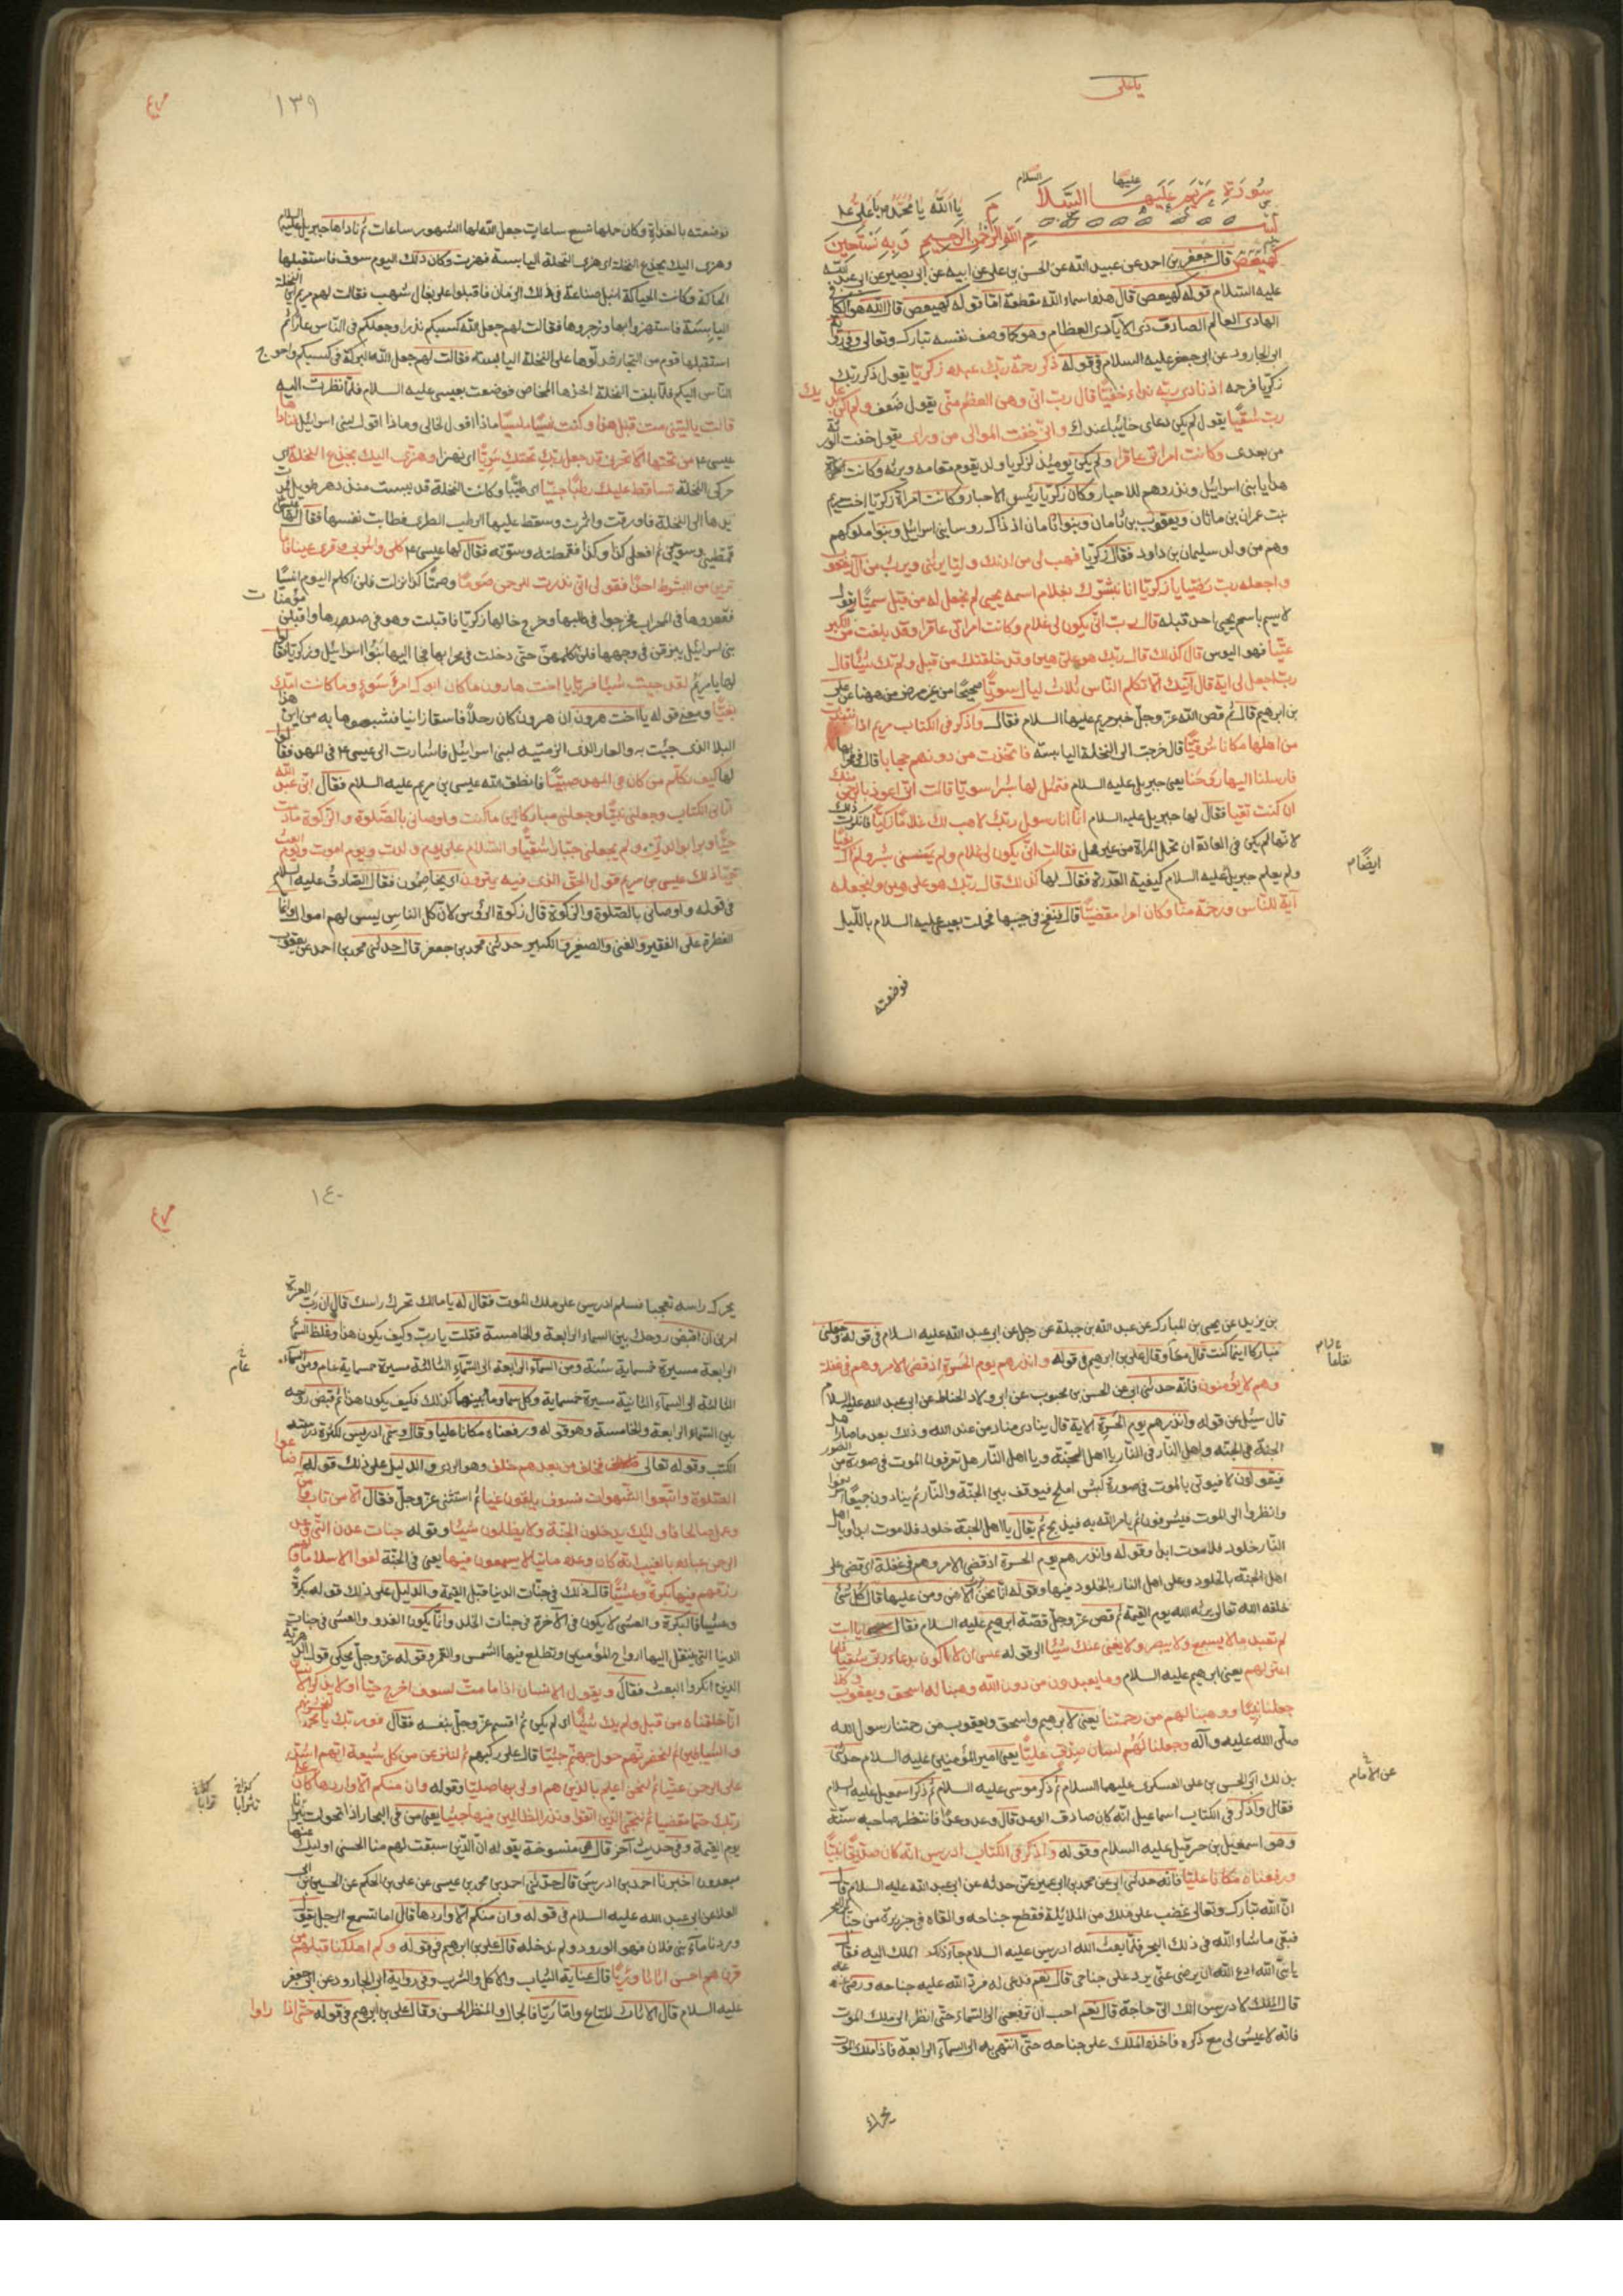 يا على
سورة مريم عليها السلام
يا الله يا محمد يا على
بسم الله الرحمن الرحيم وبه نستعين
كهيعص قال جعفر بن احمد عن عبيد الله عن الحسن بن على عن ابيه عن ابى بصير عن ابى عبد الله
عليه السلام قوله كهيعص قال هذه اسماء الله مقطعة اما قوله كهيعص قال الله هو الكافى
الهادى العالم الصادق ذى الايادى العظام وهو كما وصف نفسه تبارك وتعالى وفى رواية
ابى الجارود عن ابى جعفر عليه السلام فى قوله ذكر رحمة ربك عبده زكريا يقول ذكر ربك
زكريا فرحمه اذ نادى ربه نداء خفيا قال رب انى وهن العظم منى يقول ضعف ولم اكن بدعائك
رب شقيا يقول لم يكن دعاى خايبا عندك وانى خفت الموالى من وراى يقول خفت الورثة
من بعدى وكانت امراتى عاقرا ولم يكن يومئذ لزكريا ولد يقوم مقامه ويرثه وكانت
هدايا بنى اسرائيل ونذورهم للاحبار وكان زكريا رئيس الاحبار وكانت امراة زكريا اخت مريم
بنت عمران بن ماثان ويعقوب بن ماثان وبنوا ماثان اذ ذاك روساء بنى اسرائيل وبنو ملوكهم
وهم من ولد سليمان بن داود فقال زكريا فهب لى من لدنك وليا يرثنى ويرث من آل يعقوب
واجعله رب رضيا يا زكريا انا نبشرك بغلام اسمه يحيى لم نجعل له من قبل سميا يقول
لا يسم باسم يحيى احد قبله قال رب انى يكون لى غلام وكانت امراتى عاقرا وقد بلغت من الكبر
عتيا فهو اليوس قال كذلك قال ربك هو على هين وقد خلقتك من قبل ولم تك شيئا قال
رب اجعل لى اية قال آيتك الا تكلم الناس ثلاث ليال سويا صحيحا من غير مرض
بن ابرهيم قال ثم قص الله عز وجل خبر مريم عليها السلام فقال واذكر فى الكتاب مريم اذ انتبذت
من اهلها مكانا شرقيا قال خرجت الى النخلة اليابسة فاتخذت من دونهم حجابا قال فى محرابها
فارسلنا اليها روحنا يعنى جبريل عليه السلام فتمثل لها بشرا سويا قالت انى اعوذ بالرحمن منك
ان كنت تقيا فقال لها جبريل عليه السلام انما انا رسول ربك لاهب لك غلاما زكيا فانكرت ذلك
لانها لم يكن فى العادة ان تحمل المراة من غير فحل فقالت انى يكون لى غلام ولم يمسسنى بشر ولم اك بغيا
ولم يعلم جبريل عليه السلام كيفية القدرة فقال لها كذلك قال ربك هو على هين ولنجعله
آية للناس ورحمة منا وكان امرا مقضيا قال فنفخ فى جيبها فحملت بعيسى عليه السلام بالليل
ايضا م
فوضعته
١٣٩
فوضعته بالغداة وكان حملها تسع ساعات جعل الله لها الشهور ساعات ثم ناداها جبريل عليه السلام
وهزى اليك بجذع النخلة اى هزى النخلة اليابسة فهزت وكان ذلك اليوم سوق فاستقبلها
الحاكة وكانت الحياكة انبل صناعة فى ذلك الزمان فاقبلوا على بغال شهب فقالت لهم مريم اين النخلة
اليابسة فاستهزؤا بها وزجروها فقالت لهم جعل الله كسبكم نذرا وجعلكم فى الناس عارا ثم
استقبلها قوم من التجار فدلوها على النخلة اليابسة فقالت لهم جعل الله البركة فى كسبكم واحوج
الناس اليكم فلما بلغت النخلة اخذها المخاض فوضعت بعيسى عليه السلام فلما نظرت اليه
قالت يا ليتنى مت قبل هذا وكنت نسيا منسيا ماذا اقول لخالى وماذا اقول لبنى اسرائيل فناداها
عيسى ع من تحتها الا تحزنى قد جعل ربك تحتك سريا اى نهرا وهزى اليك بجذع النخلة اى
حركى النخلة تساقط عليك رطبا جنيا اى طيبا وكانت النخلة قد يبست منذ دهر طويل فمدت
يدها الى النخلة فاورقت واثمرت وسقط عليها الرطب الطرى فطابت نفسها فقال لها عيسى
قمطينى وسوينى ثم افعلى كذا وكذا فقمطته وسوته فقال لها عيسى ع كلى واشربى وقرى عينا فاما
ترين من البشر احدا فقولى انى نذرت للرحمن صوما وصمتا كذا نزلت فلن اكلم اليوم انسيا
ففقدوها فى المحراب فخرجوا فى طلبها وخرج خالها زكريا فاقبلت وهو فى صدرها واقبلن مؤمنات
بنى اسرائيل يبزقن فى وجهها فلم تكلمهن حتى دخلت فى محرابها فجا اليها بنوا اسرائيل وزكريا فقالوا
لها يا مريم لقد جيت شيئا فريا يا اخت هارون ما كان ابوك امرا سوء وما كانت امك
بغيا ومعنى قوله يا اخت هرون ان هرون كان رجلا فاسقا زانيا فشبهوها به من اين هذا
البلا الذى جئت به والعار الذى الزمتيه لبنى اسرائيل فاشارت الى عيسى ع فى المهد فقالوا
لها كيف نكلم من كان فى المهد صبيا فانطق الله عيسى بن مريم عليه السلام فقال انى عبد الله
آتانى الكتاب وجعلنى نبيا وجعلنى مباركا اين ما كنت واوصانى بالصلوة والزكوة ما دمت
حيا وبرا بوالدتى ولم يجعلنى جبارا شقيا والسلام على يوم ولدت ويوم اموت ويوم ابعث
حيا ذلك عيسى بن مريم قول الحق الذى فيه يمترون اى يخاصمون فقال الصادق عليه السلام
فى قوله واوصانى بالصلوة والزكوة قال زكوة الرؤس لان كل الناس ليس لهم اموال وانما
الفطرة على الفقير والغنى والصغير والكبير حدثنى محمد بن جعفر قال حدثنى محمد بن احمد عن يعقوب
بن يزيد عن يحيى بن المبارك عن عبد الله بن جبلة عن رجل عن ابى عبد الله عليه السلام فى قوله وجعلنى
مباركا اينما كنت قال نفاعا وقال على بن ابرهيم فى قوله وانذرهم يوم الحسرة اذ قضى الامر وهم فى غفلة
وهم لا يؤمنون فانه حدثنى ابى عن الحسن بن محبوب عن ابى ولاد الحناط عن ابى عبد الله عليه السلام
قال سئل عن قوله وانذرهم يوم الحسرة الاية قال ينادى مناد من عند الله وذلك بعد ما صار اهل
الجنة فى الجنة واهل النار فى النار يا اهل الجنة ويا اهل النار هل تعرفون الموت فى صورة من الصور
فيقولون لا فيوتى بالموت فى صورة كبش املح فيوقف بين الجنة والنار ثم ينادون جميعا اشرفوا
وانظروا الى الموت فيشرفون ثم يامر الله به فيذبح ثم يقال يا اهل الجنة خلود فلا موت ابدا ويا اهل
النار خلود فلا موت ابدا وقوله وانذرهم يوم الحسرة اذ قضى الامر وهم فى غفلة اى قضى على
اهل الجنة بالخلود وعلى اهل النار بالخلود فيها وقوله انا نحن نرث الارض ومن عليها قال كل شئ
خلقه الله تعالى يرثه الله يوم القيمة ثم قص عز وجل قصة ابرهيم عليه السلام فقال يا ابت
لم تعبد ما لا يسمع ولا يبصر ولا يغنى عنك شيئا الى قوله عسى ان لا اكون بدعاء ربى شقيا فلما
اعتزلهم يعنى ابرهيم عليه السلام وما يعبدون من دون الله وهبنا له اسحق ويعقوب وكلا
جعلنا نبيا ووهبنا لهم من رحمتنا يعنى لابرهيم واسحق ويعقوب من رحمتنا رسول الله
صلى الله عليه وآله وجعلنا لهم لسان صدق عليا يعنى امير المؤمنين عليه السلام حدثنى
بذلك ابى الحسن بن على العسكرى عليهما السلام ثم ذكر موسى عليه السلام ثم ذكر اسمعيل عليه السلام
فقال واذكر فى الكتاب اسماعيل انه كان صادق الوعد قال وعد وعدا فانتظر صاحبه سنة
وهو اسمعيل بن حزقيل عليه السلام وقوله واذكر فى الكتاب ادريس انه كان صديقا نبيا
ورفعناه مكانا عليا فانه حدثنى ابى عن محمد بن ابى عمير عمن حدثه عن ابى عبد الله عليه السلام قال
ان الله تبارك وتعالى غضب على ملك من الملائكة فقطع جناحه والقاه فى جزيرة من جزائر البحر
فبقى ما شاء الله فى ذلك البحر فلما بعث الله ادريس عليه السلام جاء ذلك الملك اليه فقال
يا نبى الله ادع الله ان يرضى عنى ويرد على جناحى قال نعم فدعى له فرد الله عليه جناحه ورضى عنه
قال الملك لادريس الك الى حاجة قال نعم احب ان ترفعنى الى السماء حتى انظر الى ملك الموت
فانه لا عيش لى مع ذكره فاخذه الملك على جناحه حتى انتهى به الى السماء الرابعة فاذا ملك الموت
نفاعا
عن الامام
يحرك
١٤٠
يحرك راسه تعجبا فسلم ادريس على ملك الموت فقال له يا مالك تحرك راسك قال ان رب العزة
امرنى ان اقبض روحك بين السماء الرابعة والخامسة فقلت يا رب وكيف يكون هذا وغلظ السماء
الرابعة مسيرة خمسماية سنة ومن السماء الرابعة الى السماء الثالثة مسيرة خمسماية عام ومن السماء
الثالثة الى السماء الثانية مسيرة خمسماية وكل سما وما بينهما كذلك فكيف يكون هذا ثم قبض روحه
بين السماء الرابعة والخامسة وهو قوله ورفعناه مكانا عليا وقال وسمى ادريس لكثرة دراسته
الكتب وقوله تعالى فخلف من بعدهم خلف وهو الردى والدليل على ذلك قوله اضاعوا
الصلوة واتبعوا الشهوات فسوف يلقون غيا ثم استثنى عز وجل فقال الا من تاب وآمن
وعمل صالحا فاوليك يدخلون الجنة ولا يظلمون شيئا وقوله جنات عدن التى وعد
الرحمن عباده بالغيب انه كان وعده ماتيا لا يسمعون فيها يعنى فى الجنة لغوا الا سلاما ولهم
رزقهم فيها بكرة وعشيا قال ذلك فى جنات الدنيا قبل القيمة والدليل على ذلك قوله بكرة
وعشيا فالبكرة والعشى لا يكون فى الآخرة فى جنات الخلد وانما يكون الغدو والعشى فى جنات
الدنيا التى ينتقل اليها ارواح المؤمنين وتطلع فيها الشمس والقمر وقوله عز وجل يحكى قول الدهرية
الذين انكروا البعث فقال ويقول الانسان اذا ما مت لسوف اخرج حيا اولا يذكر الانسان
انا خلقناه من قبل ولم يك شيئا اى لم يكن ثم اقسم عز وجل بنفسه فقال فوربك يا محمد لنحشرنهم
والشياطين ثم لنحضرنهم حول جهنم جثيا قال على ركبهم ثم لننزعن من كل شيعة ايهم اشد
على الرحمن عتيا ثم لنحن اعلم بالذين هم اولى بها صليا وقوله وان منكم الا واردها كان على
ربك حتما مقضيا ثم ننجى الذين اتقوا ونذر الظالمين فيها جثيا يعنى من فى البحار اذا تحولت نيرانا
يوم القيمة وفى حديث آخر قال هى منسوخة بقوله ان الذين سبقت لهم منا الحسنى اوليك عنها
مبعدون اخبرنا احمد بن ادريس قال حدثنى احمد بن محمد بن عيسى عن على بن الحكم عن الحسين بن ابى
العلا عن ابى عبد الله عليه السلام فى قوله وان منكم الا واردها قال اما تسمع الرجل يقول
وردنا ماء بنى فلان فهو الورود ولم يدخله قال على بن ابرهيم فى قوله وكم اهلكنا قبلهم من
قرن هم احسن اثاثا ورئيا قال عنا به الثياب والاكل والشرب وفى رواية ابى الجارود عن ابى جعفر
عليه السلام قال الاثاث المتاع واما رئيا فالجمال والمنظر الحسن وقال على بن ابرهيم فى قوله حتى اذا راوا
عام